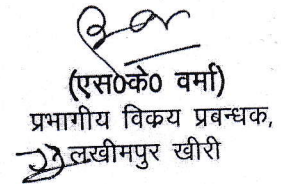 (एस0के0 वर्मा)
प्रभागीय विकय प्रबन्धक,
लखीमपुर खीरी